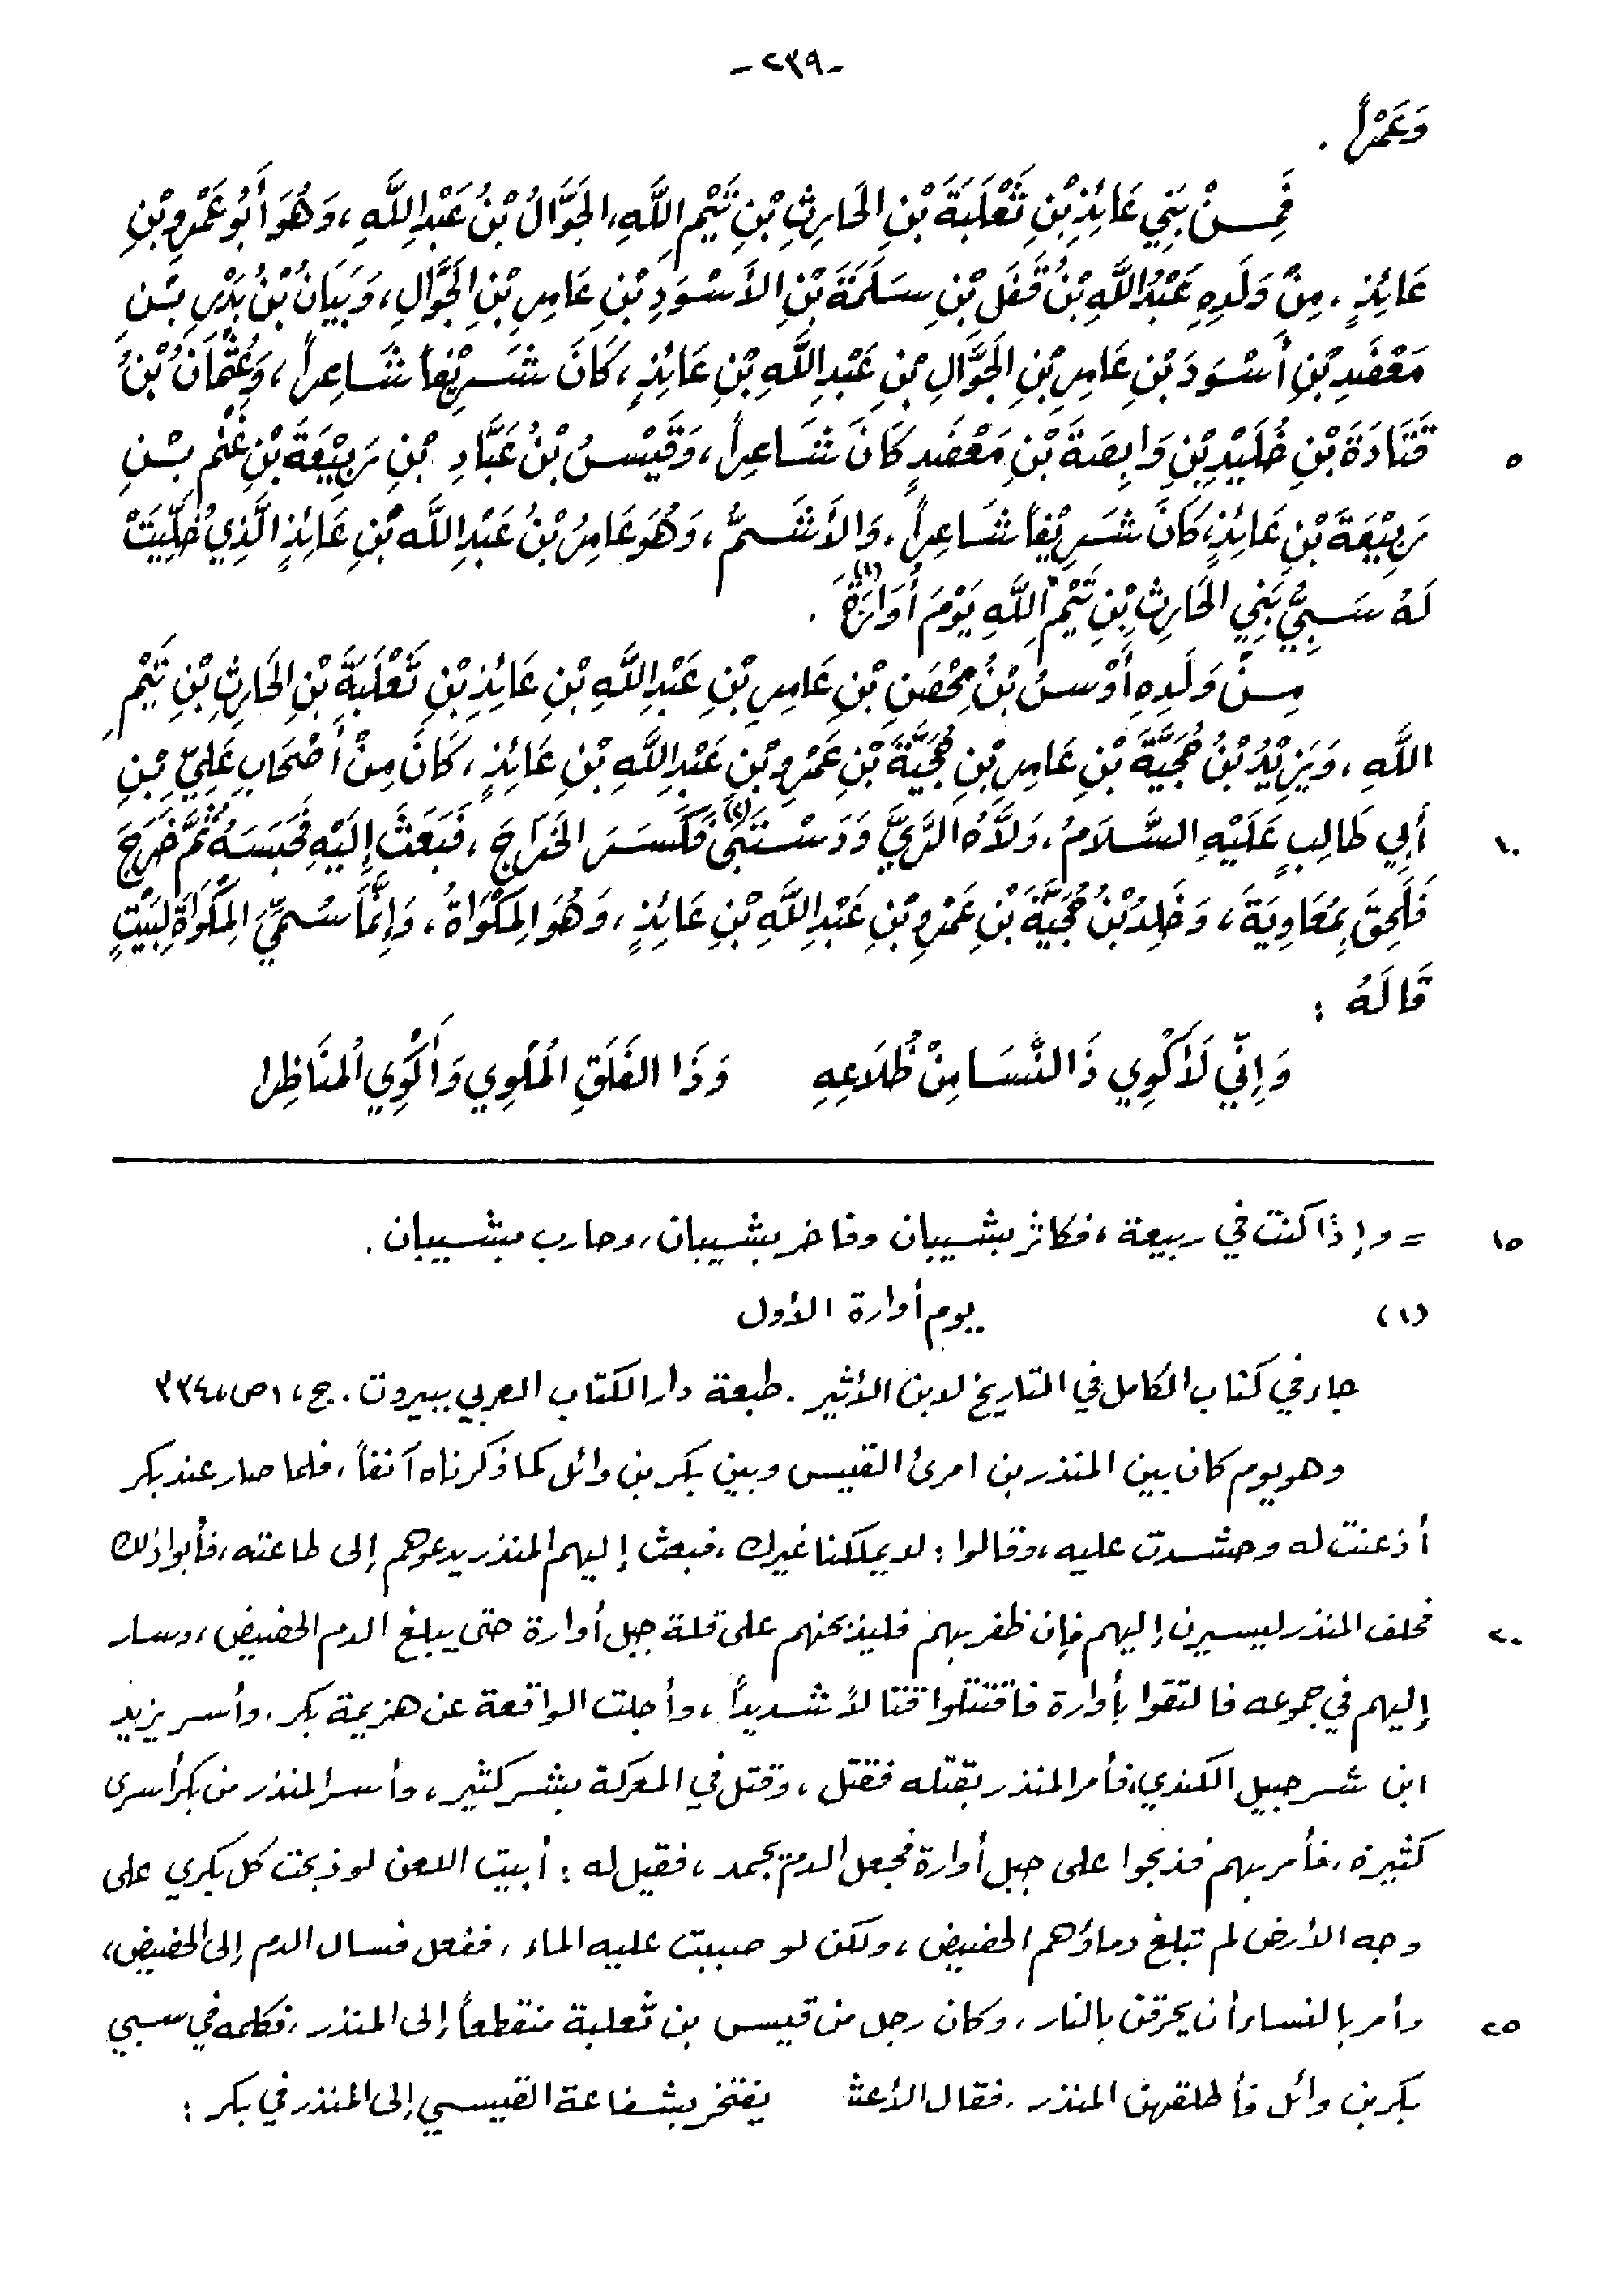 -٢٣٩-
وَعَمْراً .
فَمِنْ بَنِي عَائِذِ بْنِ ثَعْلَبَةَ بْنِ الحَارِثِ بْنِ تَيْمِ اللَّهِ، الجَوَّالُ بْنُ عَبْدِ اللَّهِ، وَهُوَ أَبُو عَمْرِو بْنِ
عَائِذٍ، مِنْ وَلَدِهِ عَبْدُ اللَّهِ بْنُ قَفَلِ بْنِ سَلَمَةَ بْنِ الأَسْوَدِ بْنِ عَامِرِ بْنِ الجَوَّالِ، وَبَيَانُ بْنُ بَدْرِ بْنِ
مَعْضَدِ بْنِ أَسْوَدَ بْنِ عَامِرِ بْنِ الجَوَّالِ بْنِ عَبْدِ اللَّهِ بْنِ عَائِذٍ، كَانَ شَرِيْفاً شَاعِراً، وَعُثْمَانُ بْنُ
قَتَادَةَ بْنِ خُلَيْدِ بْنِ وَابِصَةَ بْنِ مَعْضَدٍ كَانَ شَاعِراً، وَقَيْسُ بْنُ عَبَّادِ بْنِ رَبِيْعَةَ بْنِ غَنْمِ بْنِ ٥
رَبِيْعَةَ بْنِ عَائِذٍ، كَانَ شَرِيْفاً شَاعِراً، وَالأَشَمُّ، وَهُوَ عَامِرُ بْنُ عَبْدِ اللَّه بْنِ عَائِذٍ الَّذِي خُلِّيَتْ
لَهُ سَبِيُّ بَنِي الحَارِثِ بْنِ تَيْمِ اللَّهِ يَوْمَ أُوَارَةَ (١) .
مِنْ وَلَدِهِ أَوْسُ بْنُ مِحْصَنِ بْنِ عَامِرِ بْنِ عَبْدِ اللَّهِ بْنِ عَائِذِ بْنِ ثَعْلَبَةَ بْنِ الحَارِثِ بْنِ تَيْمِ
اللَّهِ، وَيَزِيْدُ بْنُ حُجَيَّةَ بْنِ عَامِرِ بْنِ حُجَيَّةَ بْنِ عَمْرِو بْنِ عَبْدِ اللَّهِ بْنِ عَائِذٍ، كَانَ مِنْ أَصْحَابِ عَلِيِّ بْنِ
أَبِي طَالِبٍ عَلَيْهِ السَّلاَمُ، وَلاَّهُ الرَّيَّ وَدَسْتَبَى (٢) فَكَسَرَ الخَرَاجَ، فَبَعَثَ إِلَيْهِ فَحَبَسَهُ ثُمَّ خَرَجَ ١٠
فَلَحِقَ بِمُعَاوِيَةَ، وَخَلِدُ بْنُ حُجَيَّةَ بْنِ عَمْرِو بْنِ عَبْدِ اللَّهِ بْنِ عَائِذٍ، وَهُوَ المِكْوَاةُ، وَإِنَّمَا سُمِّيَ المِكْوَاةَ لِبَيْتٍ
قَالَهُ :
وَإِنِّي لَأَكْوِي ذَا النَّسَا مِنْ ظُلاَعِهِ وَذَا الغَلَقِ المَلَوِي وَأَكْوِي المنَاظِرا
= وإذا كنت في ربيعة، فكاثر بشيبان وفاخر بشيبان، وحارب بشيبان. ١٥
(١) يوم أوارة الأول
جاء في كتاب الكامل في التاريخ لابن الأثير. طبعة دار الكتاب العربي ببيروت. ج، ١ ص، ٣٣٤
وهو يوم كان بين المنذر بن امرئ القيس وبين بكر بن وائل كما ذكرناه آنفاً، فلما صار عند بكر
أذعنت له وحشدت عليه، وقالوا: لا يملكنا غيرك، فبعث إليهم المنذر يدعوهم إلى طاعته، فأبوا ذلك
فحلف المنذر ليسيرن إليهم فإن ظفر بهم فليذبحنهم على قلة جبل أوارة حتى يبلغ الدم الحضيض، وسار ٢٠
إليهم في جموعه فالتقوا بأوارة فاقتتلوا قتالاً شديداً، وأجلت الواقعة عن هزيمة بكر. وأسر يزيد
ابن شرحبيل الكندي، فأمر المنذر بقتله فقتل، وقتل في المعركة بشر كثير، وأسر المنذر من بكر أسرى
كثيرة، فأمر بهم فذبحوا على جبل أوارة فجعل الدم يجمد، فقيل له: أبيت اللعن لو ذبحت كل بكري على
وجه الأرض لم تبلغ دماؤهم الحضيض، ولكن لو صببت عليه الماء، ففعل فسال الدم إلى الحضيض،
وأمر بالنساء أن يحرقن بالنار، وكان رجل من قيس بن ثعلبة منقطعاً إلى المنذر، فكلمه في سبي ٢٥
بكر بن وائل فأطلقهن المنذر، فقال الأعشـ يفتخر بشفاعة القيسي إلى المنذر في بكر :